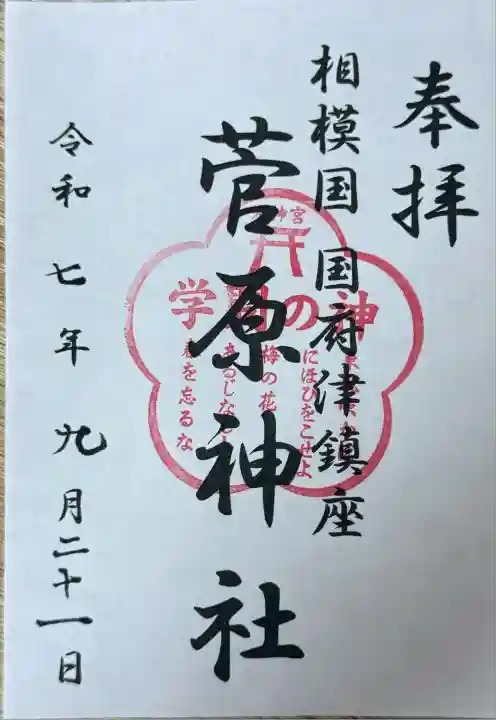 奉拝
相模国 国府津鎮座
菅原神社
令和七年九月二十一日
神宮
学 の神
にほひをこせよ
梅の花
を忘るな